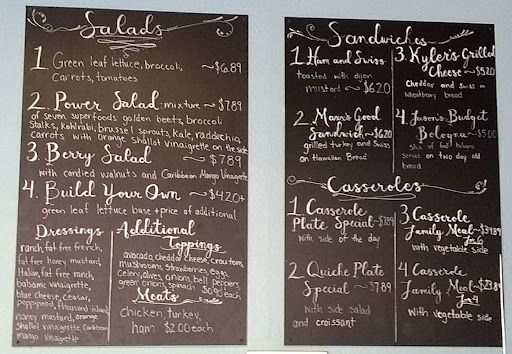 Salads
1. Green leaf lettuce, broccoli, ~ $6.89
Carrots, tomatoes
2. Power Salad: mixture ~ $7.89
of seven superfoods: golden beets, broccoli
Stalks, kohlrabi, brussel sprouts, Kale, raddichio,
carrots with orange shallot vinaigrette on the side
3. Berry Salad ~ $7.89
with candied walnuts and Caribbean Mango Vinaigrette
4. Build Your Own ~ $4.20+
green leaf lettuce base + price of additional
Dressings
ranch, fat free french,
fat free honey mustard,
Italian, fat free ranch,
balsamic vinaigrette,
blue cheese, ceasar,
poppyseed, thousand island,
honey mustard, orange
shallot vinaigrette, Caribbean
mango vinaigrette
Additional
Toppings
avocado, cheddar cheese, croutons,
mushrooms, strawberries, eggs,
Celery, olives, onions, bell peppers,
green onions, spinach each
Meats
chicken, turkey,
ham $2.00 each
Sandwiches
1. Ham and Swiss
toasted with dijon
mustard ~ $6.20
2. Good
Sandwich ~ $6.20
grilled turkey and Swiss
on Hawaiian Bread
3. Kyler's Grilled
Cheese ~ $5.20
Cheddar and Swiss on
Wheatberry bread
4. Jason's Budget
Bologna ~ $5.00
served on two day old
bread
Casseroles
1 Casserole
Plate Special ~ $7.89
with side of the day
2 Quiche Plate
Special ~ $7.89
with side salad
and croissant
3 Casserole
Family Meal ~ $34.89
for 6
with vegetable side
4 Casserole
Family Meal ~ $23.89
for 4
with vegetable side